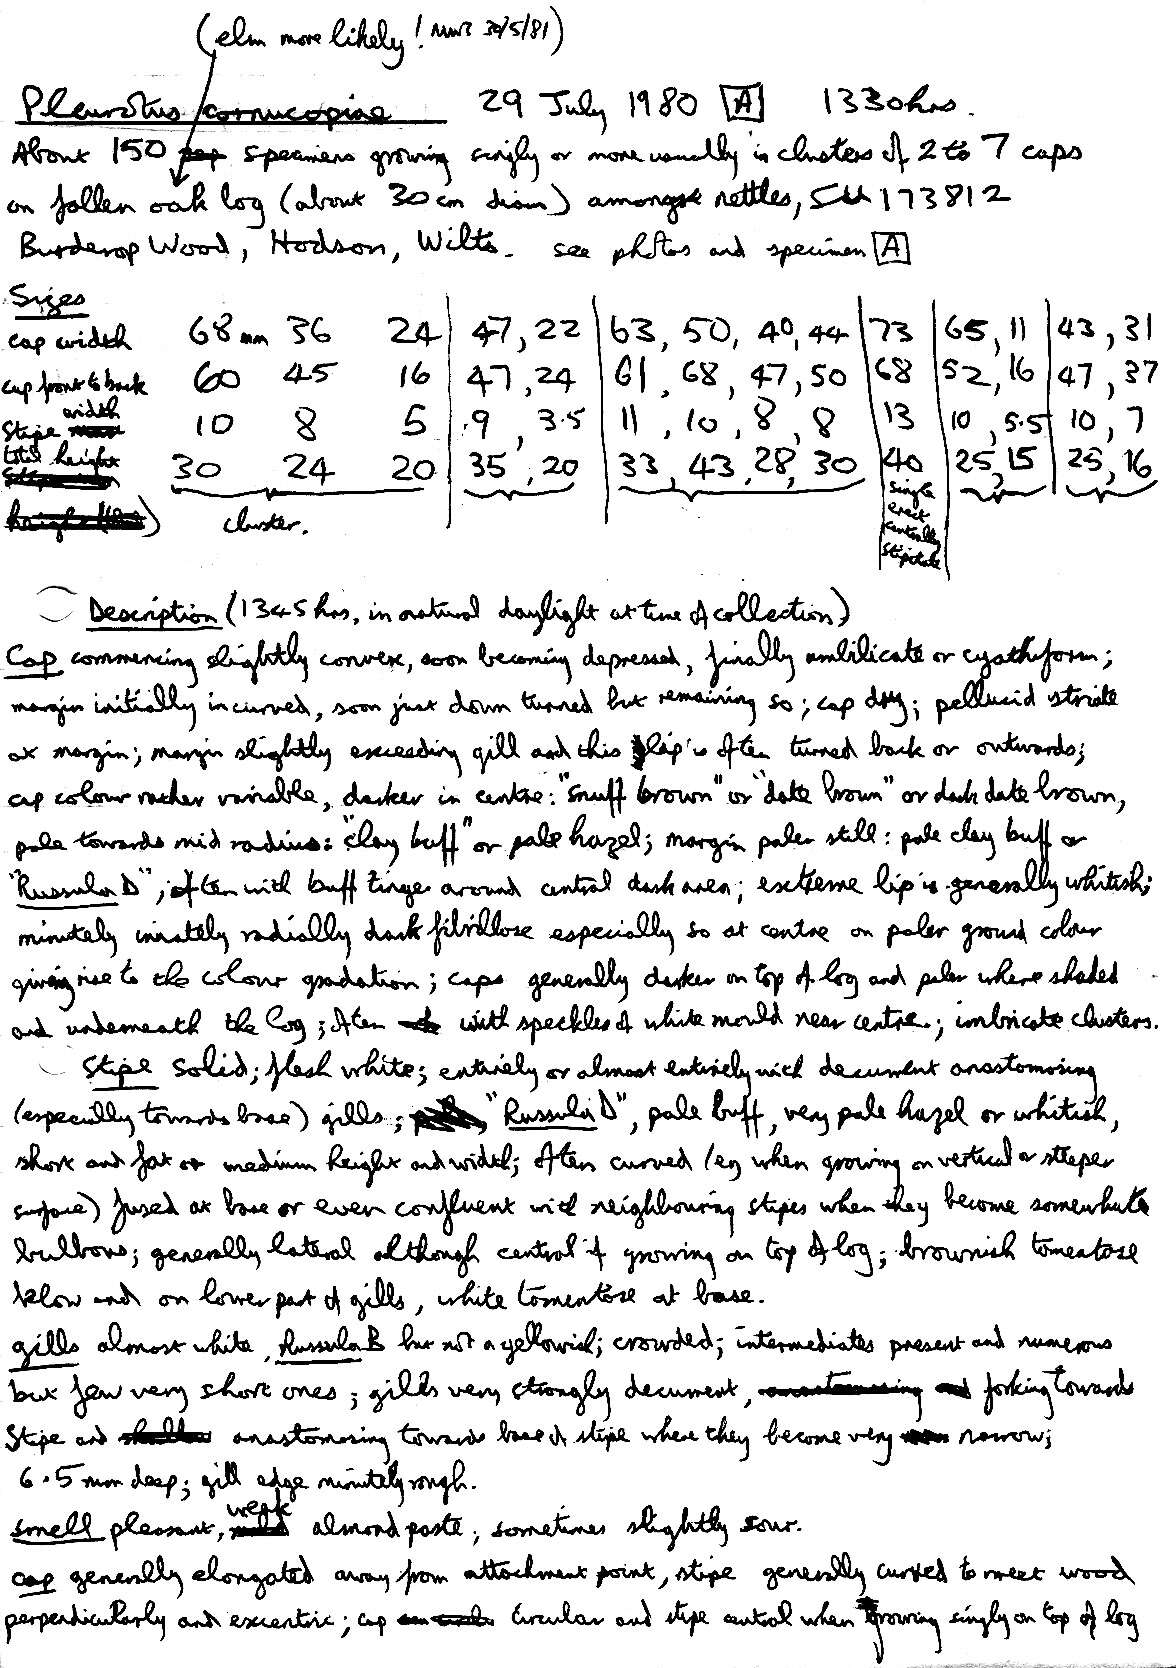 (elm more likely! MWS 30/5/81)
Pleurotus cornucopiae 29 July 1980 [A] 1330hrs.
About 150 specimens growing singly or more usually in clusters of 2 to 7 caps
on fallen oak log (about 30cm diam) amongst nettles, SU 173812
Burderop Wood, Hodson, Wilts. see photos and specimen [A]
Sizes
cap width 68mm 36 24 | 47, 22 | 63, 50, 40, 44 | 73 | 65, 11 | 43, 31
cap front to back 60 45 16 | 47, 24 | 61, 68, 47, 50 | 68 | 52, 16 | 47, 37
Stipe width 10 8 5 | 9, 3.5 | 11, 10, 8, 8 | 13 | 10, 5.5 | 10, 7
total height 30 24 20 | 35, 20 | 33, 43, 28, 30 | 40 | 25, 15 | 25, 16
cluster.
single
erect
centrally
stipitate
Description (1345hrs, in natural daylight at time of collection)
Cap commencing slightly convex, soon becoming depressed, finally umbilicate or cyathiform;
margin initially incurved, soon just down turned but remaining so; cap dry; pellucid striate
at margin; margin slightly exceeding gill and this lip is often turned back or outwards;
cap colour rather variable, darker in centre: "snuff brown" or "date brown" or dark date brown,
pale towards mid radius: "clay buff" or pale hazel; margin paler still: pale clay buff or
"Russula D"; often with buff tinge around central dark area; extreme lip is generally whitish;
minutely innately radially dark fibrillose especially so at centre on paler ground colour
giving rise to the colour gradation; caps generally darker on top of log and paler where shaded
and underneath the log; often with speckles of white mould near centre; imbricate clusters.
Stipe solid; flesh white; entirely or almost entirely with decurrent anastomosing
(especially towards base) gills; "Russula D", pale buff, very pale hazel or whitish,
short and fat or medium height and width; often curved (eg when growing on vertical or steeper
surface) fused at base or even confluent with neighbouring stipes when they become somewhat
bulbous; generally lateral although central if growing on top of log; brownish tomentose
below and on lower part of gills, white tomentose at base.
gills almost white, Russula B but not a yellowish; crowded; intermediates present and numerous
but few very short ones; gills very strongly decurrent, forking towards
stipe and anastomosing towards base of stipe where they become very narrow;
6.5mm deep; gill edge minutely rough.
smell pleasant, weak almond paste, sometimes slightly sour.
cap generally elongated away from attachment point, stipe generally curved to meet wood
perpendicularly and excentric; cap circular and stipe central when growing singly on top of log